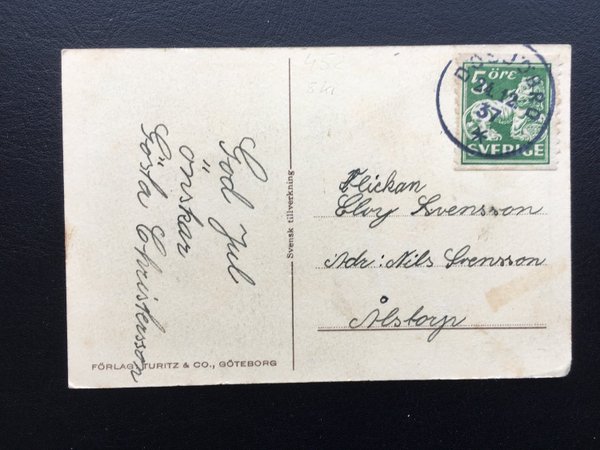 God Jul
önskar
Gösta Christensson
FÖRLAG TURITZ & CO., GÖTEBORG
Svensk tillverkning
5 ÖRE
SVERIGE
21.12
37
Flickan
Eloy Svensson
Adr: Nils Svensson
Ålstorp